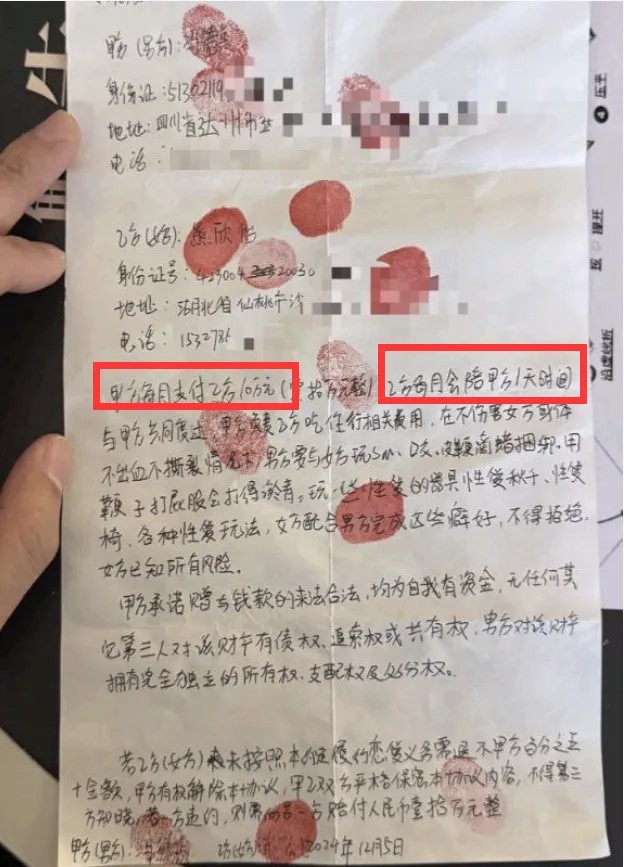 甲方(男方):
身份证:51302119
地址:四川省达州市
电话:
乙方(女方): 欣怡
身份证号:429004 20030
地址:湖北省仙桃市沙
电话:1532781
甲方每月支付乙方10万元(壹拾万元整)乙方每月会陪甲方1天时间
与甲方共同度过,甲方负责乙方吃住行相关费用,在不伤害女方身体
不出血不撕裂情况下男方要与女方玩Sm、 皮鞭滴蜡捆绑、用
鞭子打屁股会打得淤青。玩一些性爱的器具性爱秋千、性爱
椅、各种性爱玩法,女方配合男方完成这些癖好,不得拒绝。
女方已知所有风险。
甲方承诺赠与钱款的来法合法,均为自我有资金,无任何其
它第三人对该财产有债权、追索权或共有权,男方对该财产
拥有完全独立的所有权、支配权及处分权。
若乙方(女方) 未按照本 履约恋爱义务需退还甲方百分之五
十金额,甲方有权解除本协议,甲乙双方严格保密本协议内容,不得第三
方知晓, 一方违约,则 另一方赔付人民币壹拾万元整
甲方(男方): 乙方(女方): 2024年12月5日
生
值
4
压平
理开